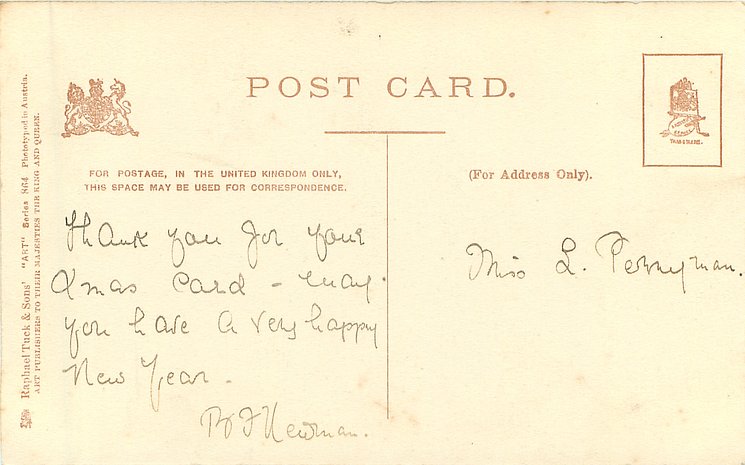 POST CARD.
FOR POSTAGE, IN THE UNITED KINGDOM ONLY,
THIS SPACE MAY BE USED FOR CORRESPONDENCE.
(For Address Only).
TRADE MARK.
Thank you for your
Xmas Card - may
you have a very happy
New Year.
B F Newman.
Miss L. Pennyman.
Raphael Tuck & Sons' "ART" Series 864. Phototyped in Austria.
ART PUBLISHERS TO THEIR MAJESTIES THE KING AND QUEEN.